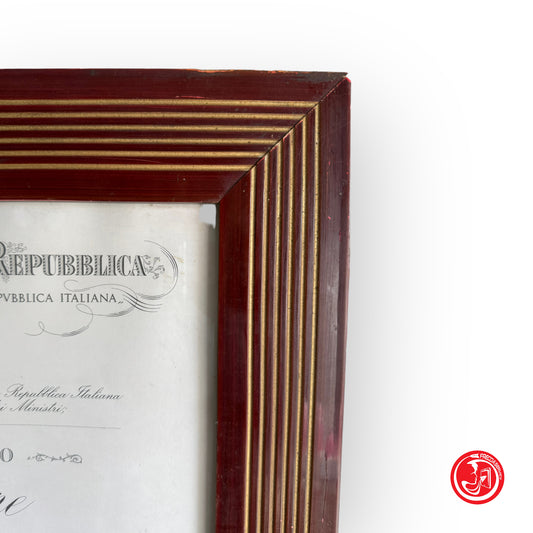 REPUBBLICA
PVBBLICA ITALIANA„
Repubblica Italiana
i Ministri;
O